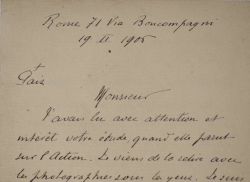 Rome 71 Via Boncompagni
19 II 1905
+
Paix
Monsieur
J'avais lu avec attention et
intérêt votre étude, quand elle parut
sur l'Action. Je viens de la relire avec
les photographies sous les yeux. Je suis